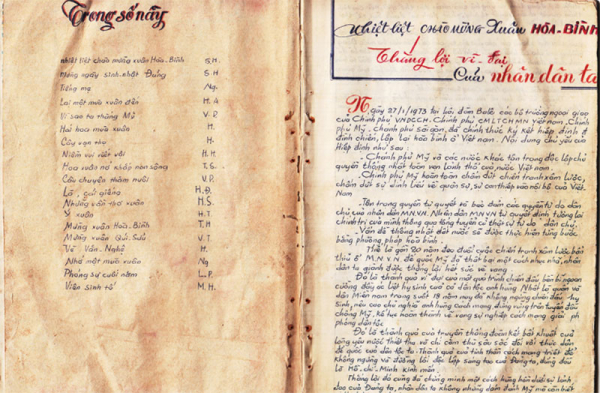 Trong số này
nhiệt liệt chào mừng xuân Hòa-Bình S.H
Mừng ngày sinh nhật Đảng S.H
Tiếng mẹ Ng.
Lại một mùa xuân đến H.A
Vì sao ta thắng Mỹ V.P
Hai hoa mùa xuân H.
Cây vạn thọ H.
Niềm vui viết vội H.H.
Hoa xuân nở khắp nẻo sông T.S.
Câu chuyện thăm nuôi V.P.
Lá, cái giếng H.Đ.
Những vần thơ xuân H.S.
Ý xuân H.T.
Mừng xuân Hòa-Bình T.H
Mừng xuân Quí-Sửu V.T
Về Văn-Nghệ H.
Nhớ một mùa xuân Ng
Phóng sự cuối năm L.P.
Viên sinh tố M.H.
Nhiệt liệt CHÀO MỪNG Xuân HÒA-BÌNH
Thắng lợi vĩ-đại
Của nhân dân ta
Ngày 27/1/1973 tại lâu đài các bộ trưởng ngoại giao
của Chính phủ VNDCCH. Chính phủ CMLTCHMN Việt nam, Chính
phủ Mỹ, Chính phủ Sài gòn, đã chính thức ký kết hiệp định
đình chiến, lập lại hòa bình ở Việt nam. Nội dung chủ yếu của
Hiệp định như sau
- Chánh phủ Mỹ và các nước khác tôn trọng độc lập chủ
quyền thống nhất toàn vẹn lãnh thổ của nước Việt nam
- Chính phủ Mỹ hoàn toàn chấm dứt chiến tranh xâm lược,
chấm dứt sự dính líu về quân sự, sự can thiệp vào nội bộ của Việt
Nam
- Tôn trọng quyền tự quyết và bảo đảm các quyền tự do dân
chủ của nhân dân M.N.V.N. Nhân dân MNVN tự quyết định tương lai
chính trị của mình thông qua tổng tuyển cử thật sự tự do dân chủ.
- Vấn đề thống nhất đất nước sẽ được thực hiện từng bước
bằng phương pháp hòa bình.
Thế là gần 20 năm đeo đuổi cuộc chiến tranh xâm lược
ở M.N.V.N đế quốc Mỹ đã thất bại một cách nhục nhã, nhân
dân ta giành được thắng lợi hết sức vẻ vang
Đó là thành quả vĩ đại của một quá trình chiến đấu
cường đầy ác liệt hy sinh của cả dân tộc anh hùng. Nhất là quân và
dân Miền nam trong suốt 18 năm nay đã không ngừng chiến đấu hy
sinh, nêu cao chủ nghĩa anh hùng cách mạng đứng vững trên tuyến đầu
chống Mỹ, kế tục hoàn thành vẻ vang sự nghiệp cách mạng giải ph
phóng dân tộc
Đó là thành quả của truyền thống đoàn kết bất khuất của
lòng yêu nước thiết tha và chí căm thù sâu sắc đối với thực dân
đế quốc của dân tộc ta. Thành quả của tinh thần cách mạng triệt để
không ngừng và đường lối độc lập sáng tạo của Đảng ta, đứng đầu
là Hồ. Chí. Minh kính mến
Thắng lợi đó cũng đã chứng minh một cách hùng hồn dưới sự lãnh
đạo của Đảng ta, nhân dân ta không những dám đánh Mỹ mà còn biết